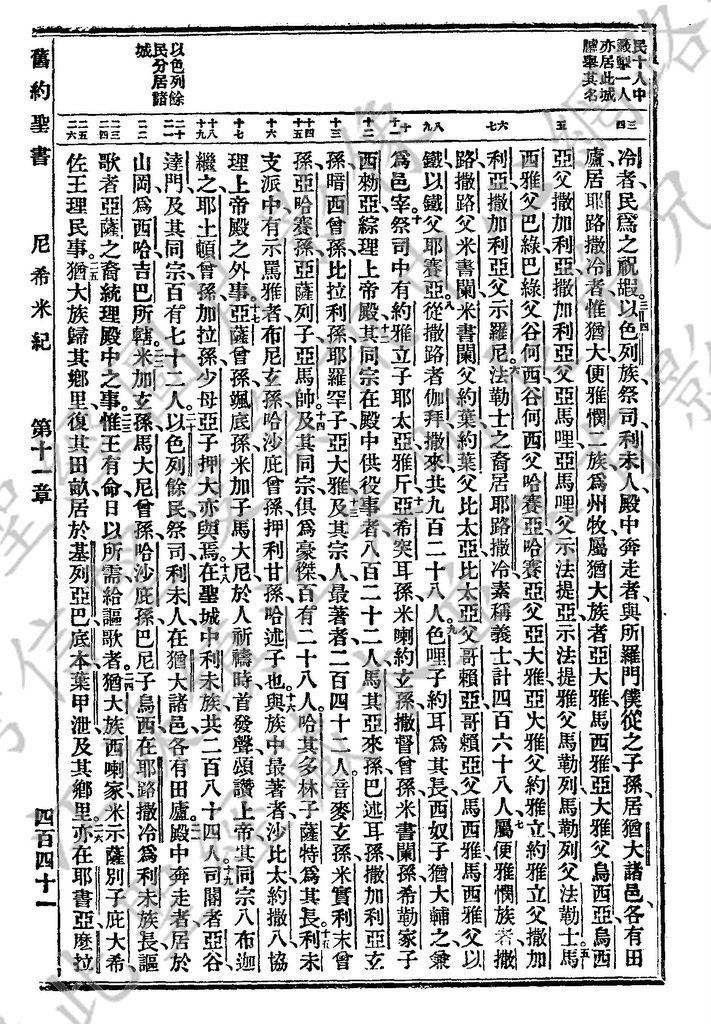 民十人中
籤掣一人
亦居此城
臚舉其名
以色列餘
民分居諸
城
三四
五
六七
八九
十
十一
十二
十三
十四
十五
十六
十七
十八
十九
二十
二一
二二
二三
二四
二五
二六
冷者民爲之祝嘏以色列族祭司利未人殿中奔走者與所羅門僕從之子孫居猶大諸邑各有田
廬居耶路撒冷者惟猶大便雅憫二族爲州牧屬猶大族者亞大雅馬西雅亞大雅父烏西亞烏西
亞父撒加利亞撒加利亞父亞馬哩亞馬哩父示法提亞示法提雅父馬勒列馬勒列父法勒士馬
西雅父巴綠巴綠父谷何西谷何西父哈賽亞哈賽亞父亞大雅亞大雅父約雅立約雅立父撒加
利亞撒加利亞父示羅尼法勒士之裔居耶路撒冷素稱義士計四百六十八人屬便雅憫族者撒
路撒路父米書闌米書闌父約葉約葉父比太亞比太亞父哥賴亞哥賴亞父馬西雅馬西雅父以
鐵以鐵父耶賽亞從撒路者伽拜撒來共九百二十八人色哩子約耳爲其長西奴子猶大輔之兼
爲邑宰祭司中有約雅立子耶太亞雅斤亞希突耳孫米喇約玄孫撒督曾孫米書闌孫希勒家子
西勑亞綜理上帝殿其同宗在殿中供役事者八百二十二人馬其亞來孫巴述耳孫撒加利亞玄
孫暗西曾孫比拉利孫耶羅罕子亞大雅及其宗人最著者二百四十二人音麥玄孫米實利末曾
孫亞哈賽孫亞薩列子亞馬帥及其同宗俱爲豪傑百有二十八人哈其多林子薩特爲其長利未
支派中有示罵雅者布尼玄孫哈沙庇曾孫押利甘孫哈述子也與族中最著者沙比太約撒八協
理上帝殿之外事亞薩曾孫颯底孫米加子馬大尼於人祈禱時首發聲頌讚上帝其同宗八布迦
繼之耶土頓曾孫加拉孫少母亞子押大亦與焉在聖城中利未族共二百八十四人司閽者亞谷
達門及其同宗百有七十二人以色列餘民祭司利未人在猶大諸邑各有田廬殿中奔走者居於
山岡爲西哈吉巴所轄米加玄孫馬大尼曾孫哈沙庇孫巴尼子烏西在耶路撒冷爲利未族長謳
歌者亞薩之裔統理殿中之事惟王有命日以所需給謳歌者猶大族西喇家米示薩別子庇大希
佐王理民事猶大族歸其鄉里復其田畝居於基列亞巴底本葉甲泄及其鄉里亦在耶書亞麼拉
舊約聖書
尼希米紀
第十一章
四百四十一